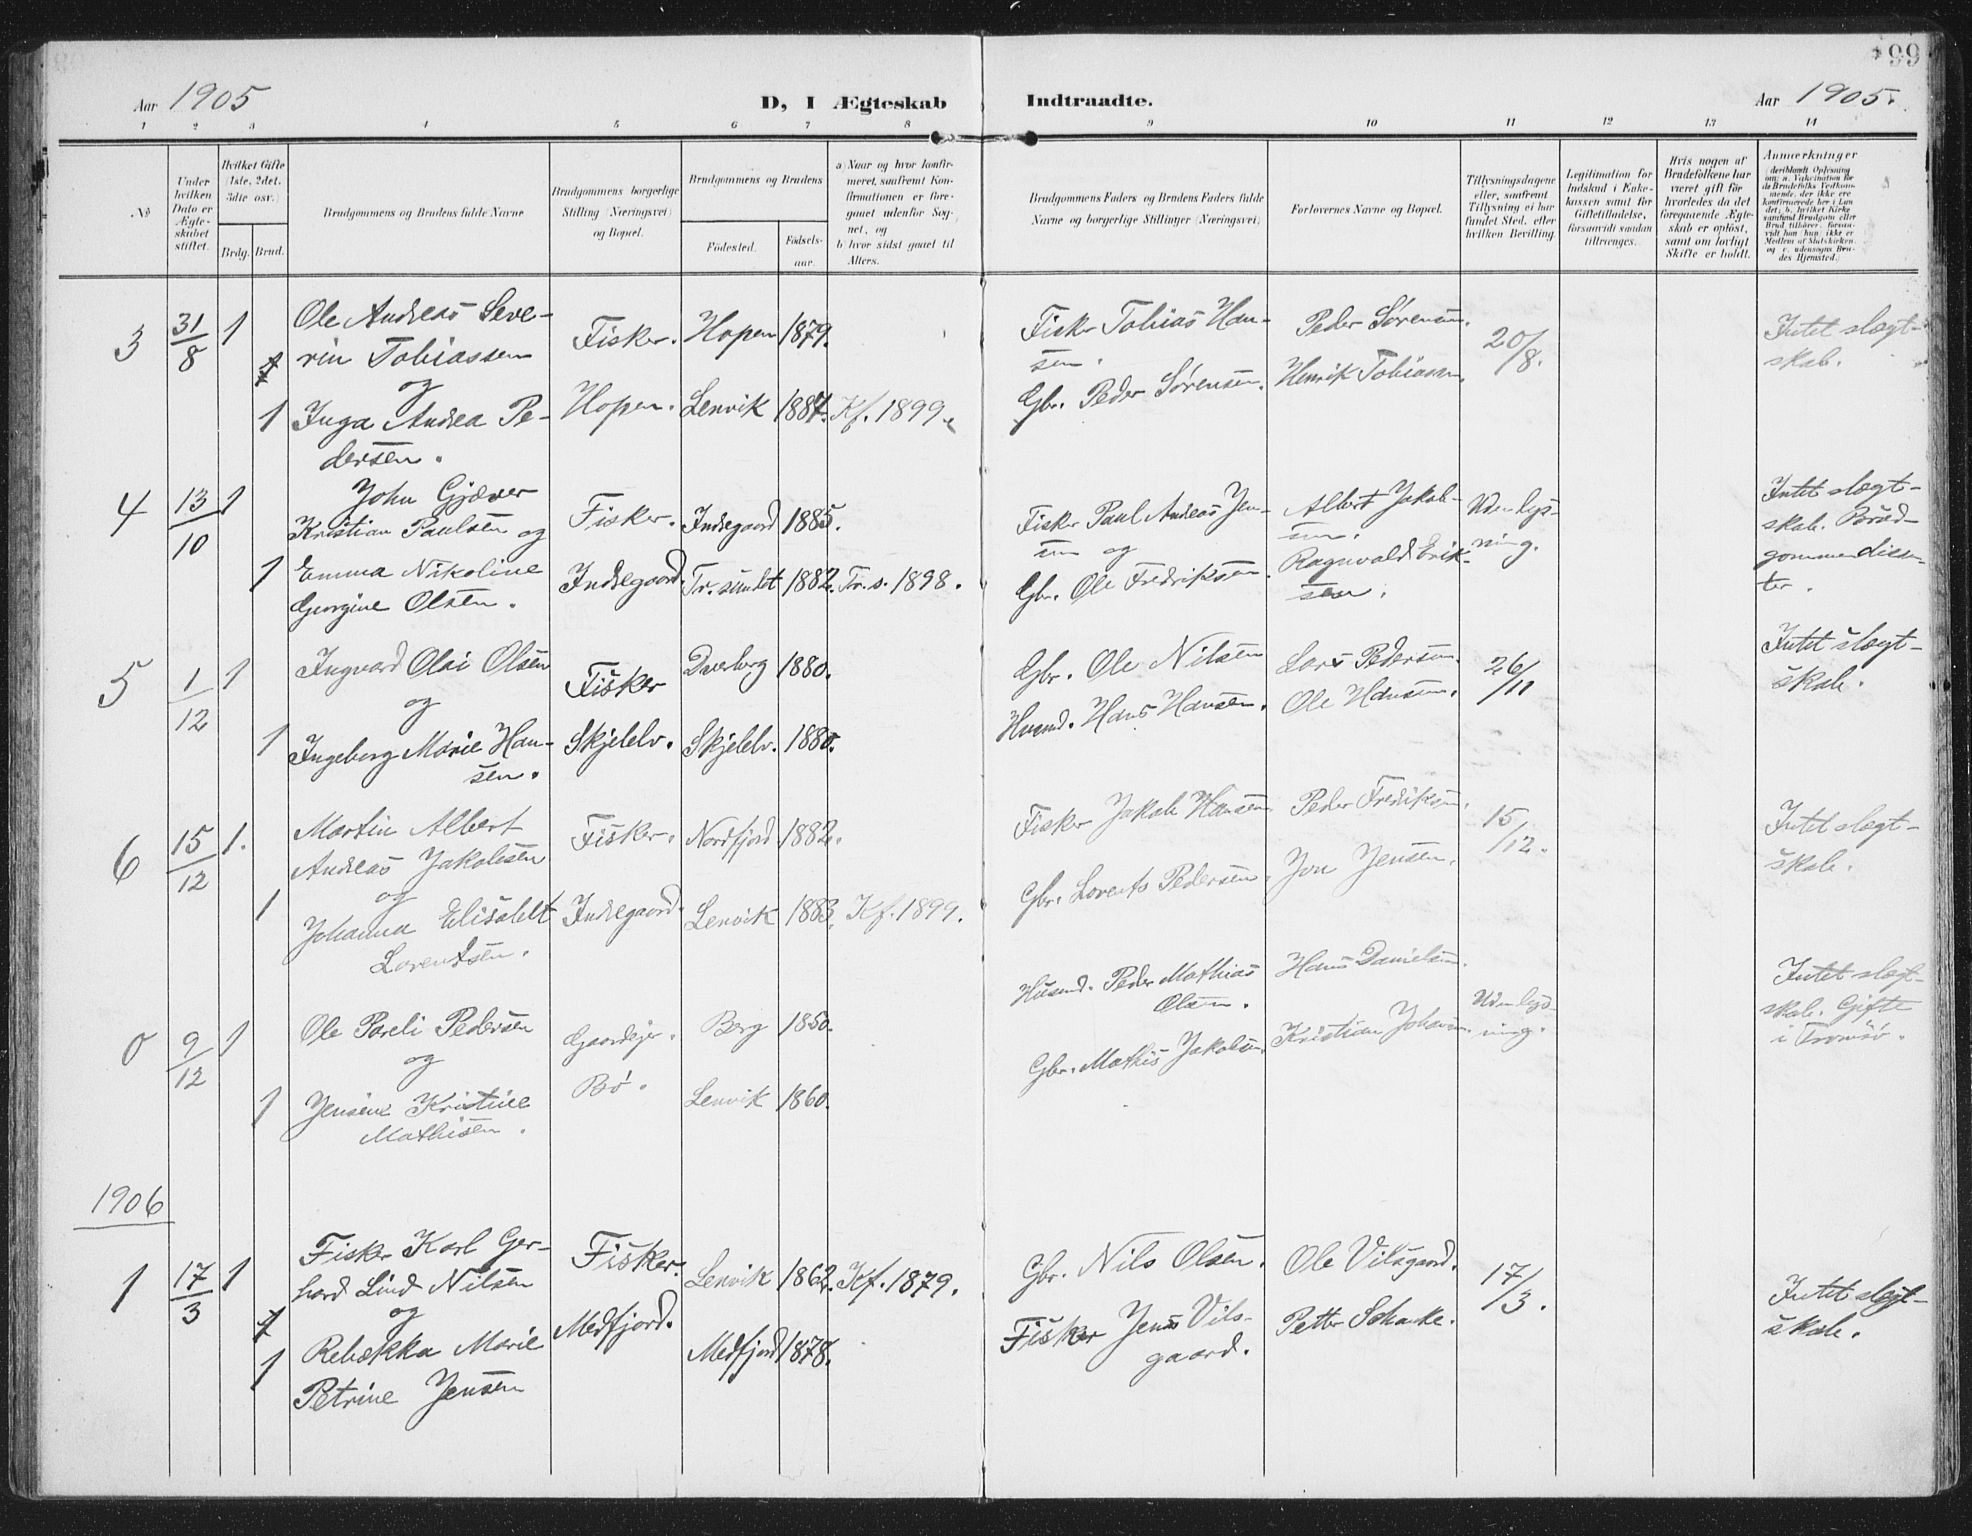 99
Aar 1905 D, I Ægteskab Indtraadte. Aar 1905.
1 2 3 4 5 6 7 8 9 10 11 12 13 14
№
Under hvilken Dato er Ægteskabet stiftet.
Hvilket Gifte (1ste, 2det, 3die osv.)
Brdg. Brud.
Brudgommens og Brudens fulde Navne
Brudgommens borgerlige Stilling (Næringsvei) og Bopæl.
Brudgommens og Brudens
Fødested. Fødselsaar.
a) Naar og hvor konfirmeret, samfremt Konfirmationen er foregaaet udenfor Sognet, og
b) hvor sidst gaaet til Alters.
Brudgommens Faders og Brudens Faders fulde Navne og borgerlige Stillinger (Næringsvei)
Forlovernes Navne og Bopæl.
Tillysningsdagene eller, samfremt Tillysning ei har fundet Sted, efter hvilken Bevilling.
Legitimation for Indskud i Enkekassen samt for Giftetilladelse, forsaavidt saadan tiltrænges.
Hvis nogen af Brudefolkene har været gift før hvorledes da det foregaaende Ægteskab er opløst, samt om lovligt Skifte er holdt.
Anmærkninger
3 31/8 1
Ole Andreas Seve-
rin Tobiassen
og
1 Inga Andrea Pe-
dersen.
Fisker.
Hopen.
Hopen 1879.
Lenvik 1884. Kf. 1899.
Fisker Tobias Han-
sen.
Gbr. Peder Sørensen.
Peder Sørensen.
Henrik Tobiassen.
20/8.
Intet slægt-
skab.
4 13/10 1
John Gjæver
Kristian Paulsen og
1 Emma Nikoline
Georgine Olsen.
Fisker.
Indregaard.
Indregaard 1885.
Tr. sundet 1882. Tr. s. 1898.
Fisker Paul Andreas Jen-
sen og
Gbr. Ole Fredriksen.
Albert Jakob-
sen.
Ragnvald Erik-
sen.
Uden lys-
ning.
Intet slægt-
skab. Brud-
gommen dissen-
ter.
5 1/12 1
Ingvard Olai Olsen
og
1 Ingeborg Marie Han-
sen.
Fisker
Skjelelv.
Dverberg 1880.
Skjelelv. 1880.
Gbr. Ole Nilsen
Husmd. Hans Hansen.
Lars Pedersen.
Ole Hansen.
26/11
Intet slægt-
skab.
6 15/12 1.
Martin Albert
Andreas Jakobsen
og
1 Johanna Elisabet
Lorentsen.
Fisker.
Indregaard.
Nordfjord 1882.
Lenvik 1883. Kf. 1899.
Fisker Jakob Hansen
Gbr. Lorents Pedersen.
Peder Fredriksen.
Jon Jensen.
15/12.
Intet slægt-
skab.
0 9/12 1
Ole Pareli Pedersen
og
1 Jensine Kristine
Mathisen.
Gaardejer.
Bø.
Berg 1850.
Lenvik 1860.
Husmd. Peder Mathias
Olsen.
Gbr. Mathis Jakobsen.
Hans Danielsen.
Kristian Johansen.
Uden lys-
ning.
Intet slægt-
skab. Gifte
i Tromsø.
1906
1 17/3 1
Fisker Karl Ger-
hard Lind Nilsen
og
1 Rebækka Marie
Petrine Jensen
Fisker.
Medfjord.
Lenvik 1862. Kf. 1879.
Medfjord 1878.
Gbr. Nils Olsen.
Fisker Jens Vils-
gaard.
Ole Vilsgaard.
Petter Schanke.
17/3.
Intet slægt-
skab.